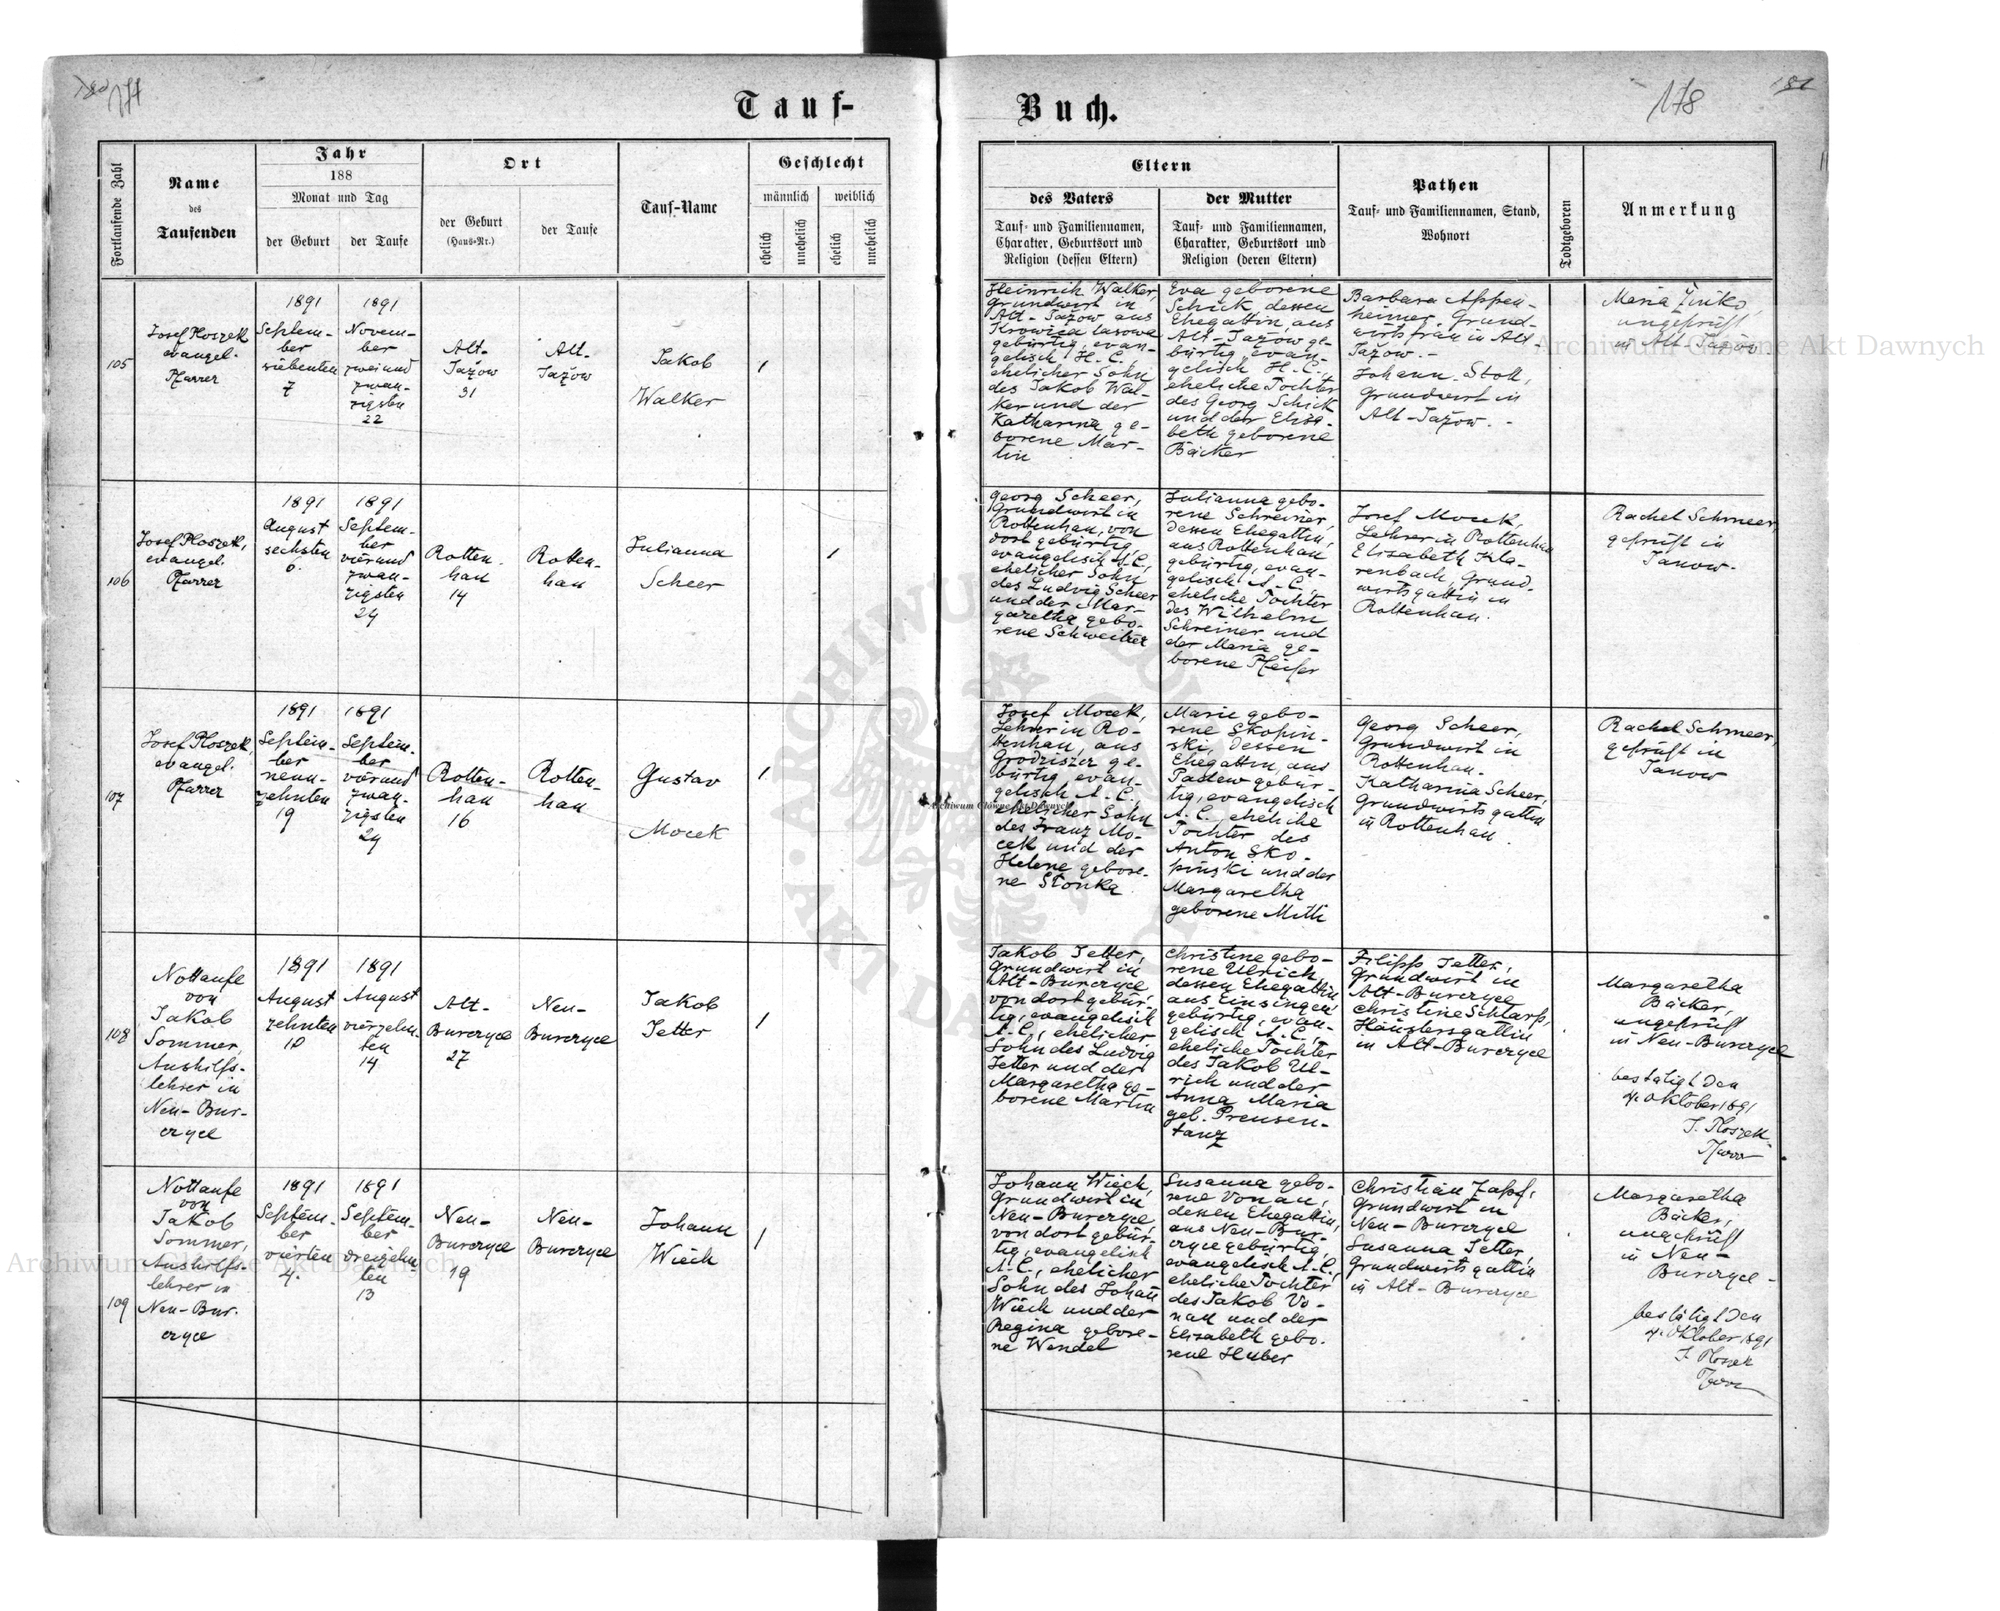 177
178
181
Tauf-
Buch.
Fortlaufende Zahl
Name
des
Taufenden
Jahr
188
Monat und Tag
der Geburt
der Taufe
Ort
der Geburt
(Haus-Nr.)
der Taufe
Tauf-Name
Geschlecht
männlich
weiblich
ehelich
unehelich
ehelich
unehelich
Eltern
des Vaters
Tauf- und Familiennamen,
Charakter, Geburtsort und
Religion (dessen Eltern)
der Mutter
Tauf- und Familiennamen,
Charakter, Geburtsort und
Religion (deren Eltern)
Pathen
Tauf- und Familiennamen, Stand,
Wohnort
Todtgeboren
Anmerkung
105
Josef Ploszek
evangel.
Pfarrer
1891
Septem-
ber
siebenten
7
1891
Novem-
ber
zwei und
zwan-
zigsten
22
Alt-
Jažow
31
Alt-
Jažow
Jakob
Walker
1
Heinrich Walker,
Grundwirt in
Alt-Jažow aus
Krowica lasowa
gebürtig, evan-
gelisch H. C.,
ehelicher Sohn
des Jakob Wal-
ker und der
Katharina ge-
borene Mar-
tin
Eva geborene
Schick dessen
Ehegattin, aus
Alt-Jažow ge-
bürtig, evan-
gelisch H. C.,
eheliche Tochter
des Georg Schick
und der Elisa-
beth geborene
Bäcker
Barbara Appen-
heimer, Grund-
wirtsfrau in Alt-
Jažow.-
Johann Stoll,
Grundwirt in
Alt-Jažow.-
Maria
ungeprüft
in Alt-Jažow
106
Josef Ploszek,
evangel.
Pfarrer
1891
August
sechsten
6.
1891
Septem-
ber
vierund
zwan-
zigsten
24
Rotten-
han
14
Rotten-
han
Julianna
Scheer
1
Georg Scheer,
Grundwirt in
Rottenhan, von
dort gebürtig,
evangelisch A. C.,
ehelicher Sohn
des Ludwig Scheer
und der Mar-
garetha gebo-
rene Schweitzer
Julianna gebo-
rene Schreiner,
dessen Ehegattin,
aus Rottenhan
gebürtig, evan-
gelisch A. C.,
eheliche Tochter
des Wilhelm
Schreiner und
der Maria ge-
borene Pfeifer
Josef Mocek,
Lehrer in Rottenhan
Elisabeth Kla-
renbach, Grund-
wirtsgattin in
Rottenhan.
Rachel Schmeer
geprüft in
Janow.
107
Josef Ploszek,
evangel.
Pfarrer
1891
Septem-
ber
neun-
zehnten
19
1891
Septem-
ber
vierund
zwan-
zigsten
24
Rotten-
han
16
Rotten-
han
Gustav
Mocek
1
Josef Mocek,
Lehrer in Ro-
ttenhan, aus
Grodziszcz ge-
bürtig, evan-
gelisch A. C.,
ehelicher Sohn
des Franz Mo-
cek und der
Helene gebore-
ne Stonka
Marie gebo-
rene Skopin-
ski, dessen
Ehegattin, aus
Padew gebür-
tig, evangelisch
A. C., eheliche
Tochter des
Anton Sko-
pinski und der
Margaretha
geborene Mitli
Georg Scheer,
Grundwirt in
Rottenhan.
Katharina Scheer,
Grundwirtsgattin
in Rottenhan.
Rachel Schmeer,
geprüft in
Janow
108
Nottaufe
von
Jakob
Sommer,
Aushilfs-
lehrer in
Neu-Bur-
czyce
1891
August
zehnten
10
1891
August
vierzehn-
ten
14
Alt-
Burczyce
27
Neu-
Burczyce
Jakob
Jetter
1
Jakob Jetter,
Grundwirt in
Alt-Burczyce
von dort gebür-
tig, evangelisch
A. C., ehelicher
Sohn des Ludwig
Jetter und der
Margaretha ge-
borene Martin
Christine gebo-
rene Ulrich,
dessen Ehegattin
aus Einsingen
gebürtig, evan-
gelisch A. C.,
eheliche Tochter
des Jakob Ul-
rich und der
Anna Maria
geb. Preusen-
tanz
Filipp Jetter,
Grundwirt in
Alt-Burczyce
Christine Schlarp,
Häuslersgattin
in Alt-Burczyce
Margaretha
Bäcker,
ungeprüft
in Neu-Burczyce
bestätigt den
4. Oktober 1891
J. Ploszek
Pfarrer
109
Nottaufe
von
Jakob
Sommer,
Aushilfs-
lehrer in
Neu-Bur-
czyce
1891
Septem-
ber
vierten
4.
1891
Septem-
ber
dreizehn-
ten
13
Neu-
Burczyce
19
Neu-
Burczyce
Johann
Wiech
1
Johann Wiech,
Grundwirt in
Neu-Burczyce,
von dort gebür-
tig, evangelisch
A. C., ehelicher
Sohn des Johann
Wiech und der
Regina gebore-
ne Wendel
Susanna gebo-
rene Vonau,
dessen Ehegattin,
aus Neu-Bur-
czyce gebürtig,
evangelisch A. C.,
eheliche Tochter
des Jakob Vo-
nau und der
Elisabeth gebo-
rene Huber
Christian Zapf,
Grundwirt in
Neu-Burczyce
Susanna Jetter,
Grundwirtsgattin
in Alt-Burczyce
Margaretha
Bäcker,
ungeprüft
in Neu-
Burczyce-
bestätigt den
4. Oktober 1891
J. Ploszek
Pfarrer
Archiwum Główne Akt Dawnych
Archiwum Główne Akt Dawnych
Archiwum Główne Akt Dawnych